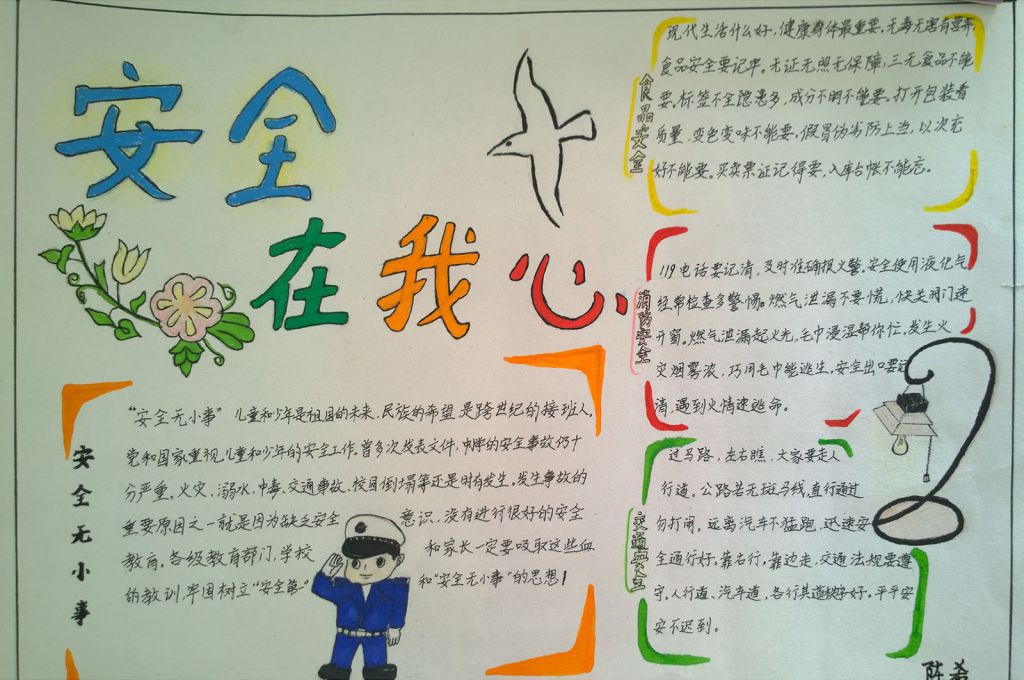 安全
在我心
安全无小事
"安全无小事"儿童和少年是祖国的未来、民族的希望、是跨世纪的接班人,
党和国家重视儿童和少年的安全工作,曾多次发表文件,中的安全事故仍十
分严重。火灾、溺水、中毒、交通事故、校园倒塌等还是时有发生。发生事故的
重要原因之一就是因为缺乏安全意识,没有进行很好的安全
教育。各级教育部门,学校和家长一定要吸取这些血
的教训,牢固树立"安全第一"和"安全无小事"的思想!
食品安全
现代生活什么好,健康身体最重要。无毒无害有营养,
食品安全要记牢。无证无照无保障,三无食品不能
要。标签不全隐患多,成分不明不能要。打开包装看
质量,变色变味不能要。假冒伪劣防上当,以次充
好不能要。买卖票证记得要,入库台帐不能忘。
消防安全
119电话要记清,及时准确报火警。安全使用液化气
经常检查多警惕。燃气泄漏不要慌,快关阀门速
开窗。燃气泄漏起火光,毛巾浸湿帮你忙。发生火
灾烟雾浓,巧用毛巾能逃生。安全出口要记
清,遇到火情速逃命。
交通安全
过马路,左右瞧,大家要走人
行道。公路若无斑马线,直行通过
勿打闹,远离汽车不猛跑,迅速安
全通行好。靠右行,靠边走,交通法规要遵
守。人行道、汽车道,各行其道秩序好。平平安
安不迟到。
陈希